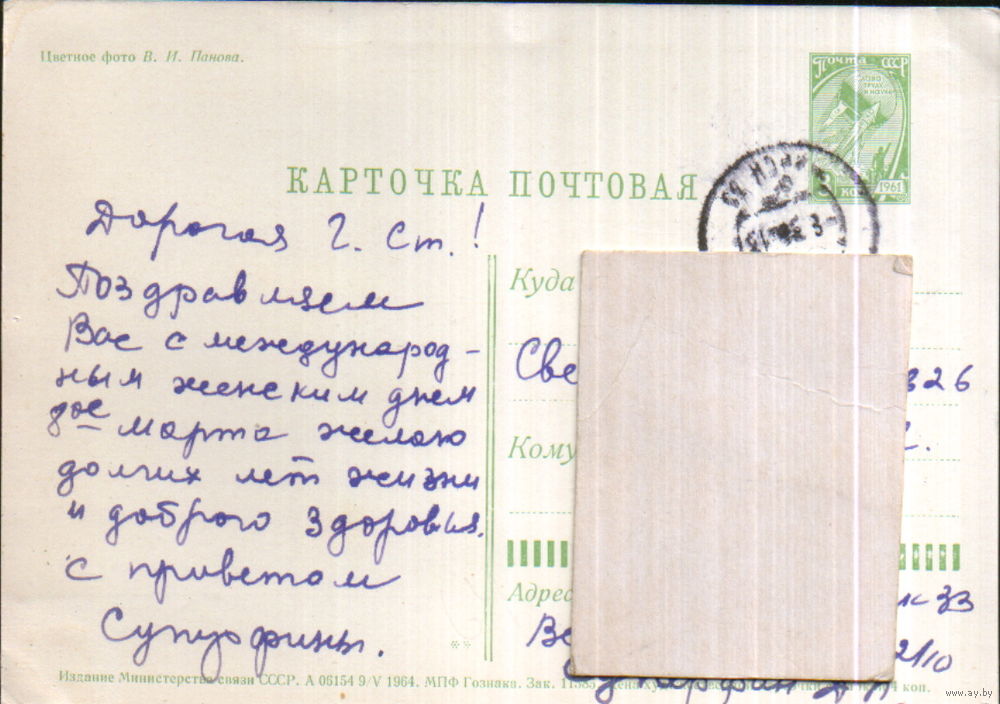 Цветное фото В. И. Панова.
Почта СССР
СЛАВА
ТРУДУ
И НАУКЕ
1961
КАРТОЧКА ПОЧТОВАЯ
Дорогая Г. Ст.!
Поздравляем
Вас с международ-
ным женским днем
8ое марта желаю
долгих лет жизни
и доброго здоровья.
с приветом
Куда
Све
326
Кому
Адрес
33
2/10
Издание Министерства связи СССР. А 06154 9/V 1964. МПФ Гознака. Зак.
4 коп.
www.ay.by